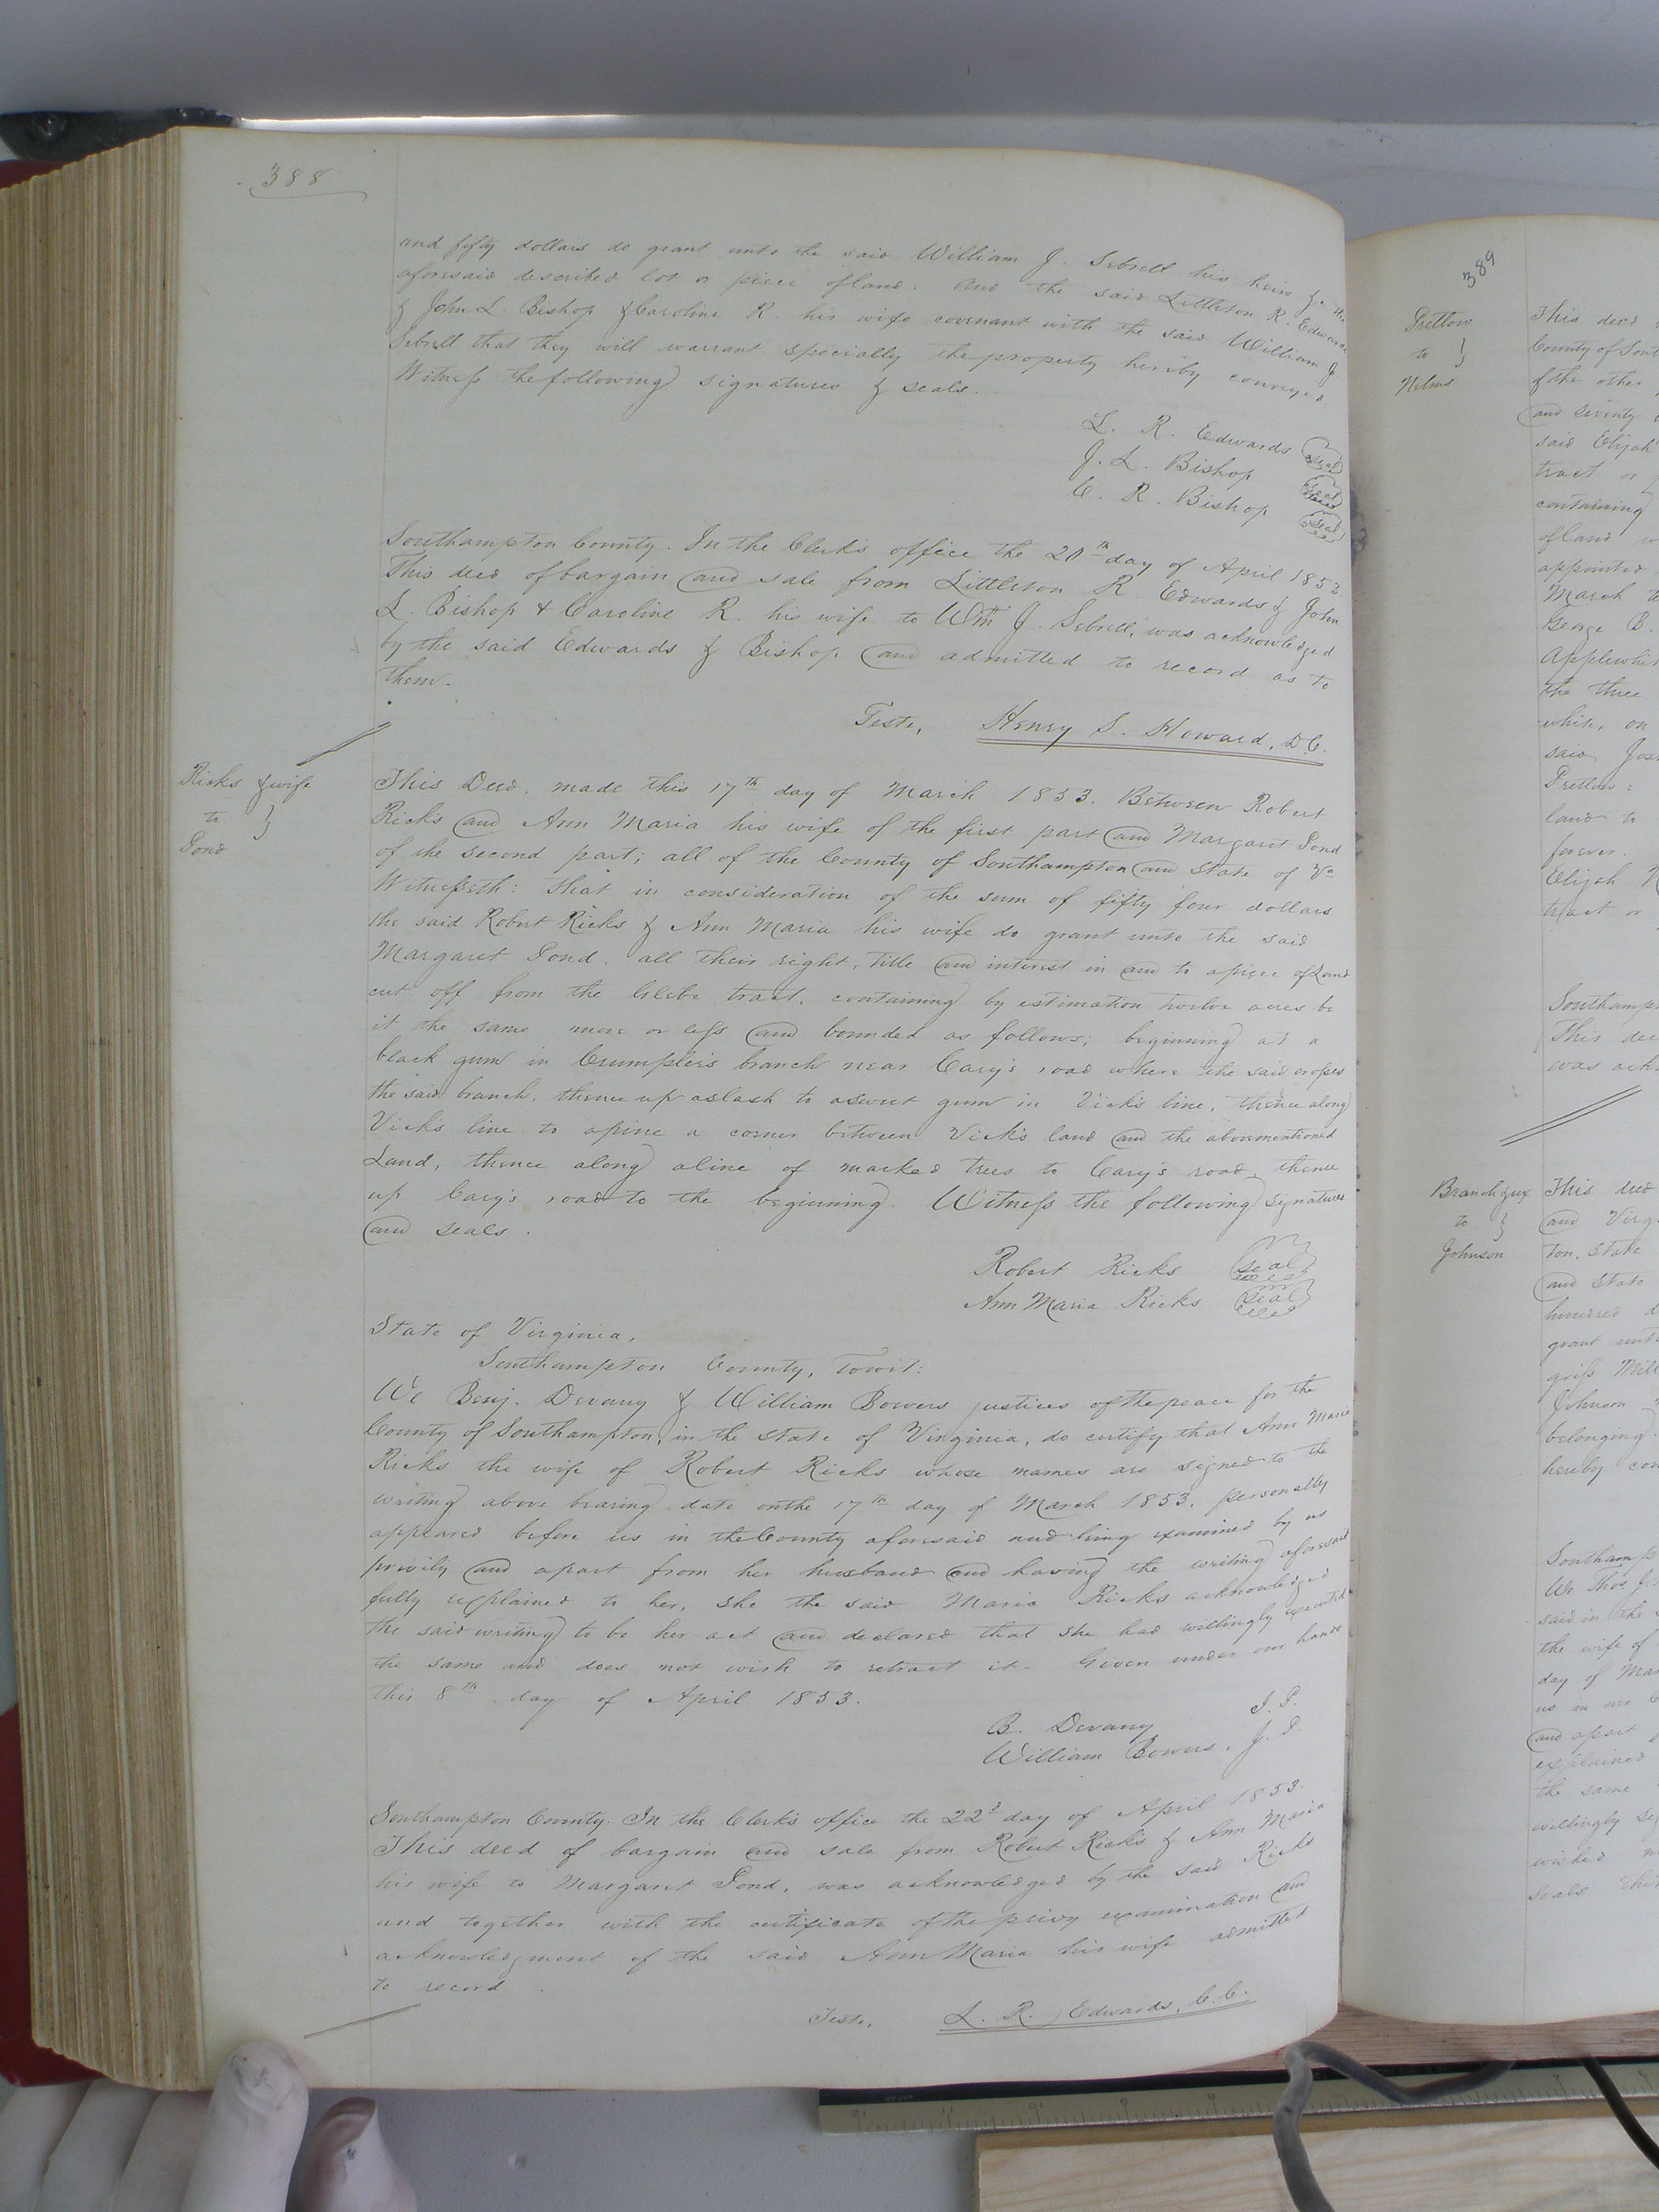 388
and fifty dollars do grant unto the said William J. Sebrell his heirs &c the
aforesaid described lot or piece of land. And the said Littleton R. Edwards
& John L. Bishop & Caroline R. his wife covenant with the said William J.
Sebrell that they will warrant specially the property hereby conveyed.
Witness the following signatures & seals.
L. R. Edwards seal
J. L. Bishop seal
C. R. Bishop seal
Southampton County. In the Clerk's office the 20th day of April 1853.
This deed of bargain and sale from Littleton R. Edwards & John
L. Bishop & Caroline R. his wife to Wm J. Sebrell, was acknowledged
by the said Edwards & Bishop and admitted to record as to
them.
Teste, Henry S. Howard, D.C.
Ricks & wife
to }
Pond
This Deed, made this 17th day of March 1853. Between Robert
Ricks and Ann Maria his wife of the first part and Margaret Pond
of the second part; all of the County of Southampton and State of Va
Witnesseth: that in consideration of the sum of fifty four dollars
the said Robert Ricks & Ann Maria his wife do grant unto the said
Margaret Pond, all their right, title and interest in and to a piece of Land
cut off from the Glebe tract, containing by estimation twelve acres be
it the same more or less and bounded as follows; beginning at a
black gum in Crumpler's branch near Cary's road where the said crosses
the said branch, thence up a slash to a sweet gum in Vick's line, thence along
Vick's line to a pine a corner between Vick's land and the abovementioned
Land, thence along a line of marked trees to Cary's road, thence
up Cary's road to the beginning. Witness the following signatures
and seals.
Robert Ricks seal
Ann Maria Ricks seal
State of Virginia,
Southampton County, Towit:
We Benj. Devany & William Bowers justices of the peace for the
County of Southampton, in the State of Virginia, do certify that Ann Maria
Ricks the wife of Robert Ricks whose names are signed to the
writing above bearing date on the 17th day of March 1853, personally
appeared before us in the County aforesaid and being examined by us
privily and apart from her husband and having the writing aforesaid
fully explained to her, she the said Maria Ricks acknowledged
the said writing to be her act and declared that she had willingly executed
the same and does not wish to retract it. Given under our hands
this 8th day of April 1853.
B. Devany J.P.
William Bowers, J.P.
Southampton County. In the Clerk's office the 22d day of April 1853.
This deed of bargain and sale from Robert Ricks & Ann Maria
his wife to Margaret Pond, was acknowledged by the said Ricks
and together with the certificate of the privy examination and
acknowledgment of the said Ann Maria his wife admitted
to record
Teste, L. R. Edwards, C.C.
389
Pretlow
to }
Nelms
This deed
County of Sout
& the other
and seventy
said Elijah
tract or
containing
of land
appointed
March
George B.
Applewhi
the three
white, on
said Jos
Pretlow:
land to
forever.
Elijah N
tract or
Southamp
This dee
was ack
Branch & ux
to }
Johnson
This deed
and Virg
ton, State
and State
hundred d
grant unt
grist Mill
Johnson
belonging.
hereby con
Southamp
We Thos J.
said in the
the wife of
day of Mar
us in our C
and apart
explained
the same
willingly
wished
seals this